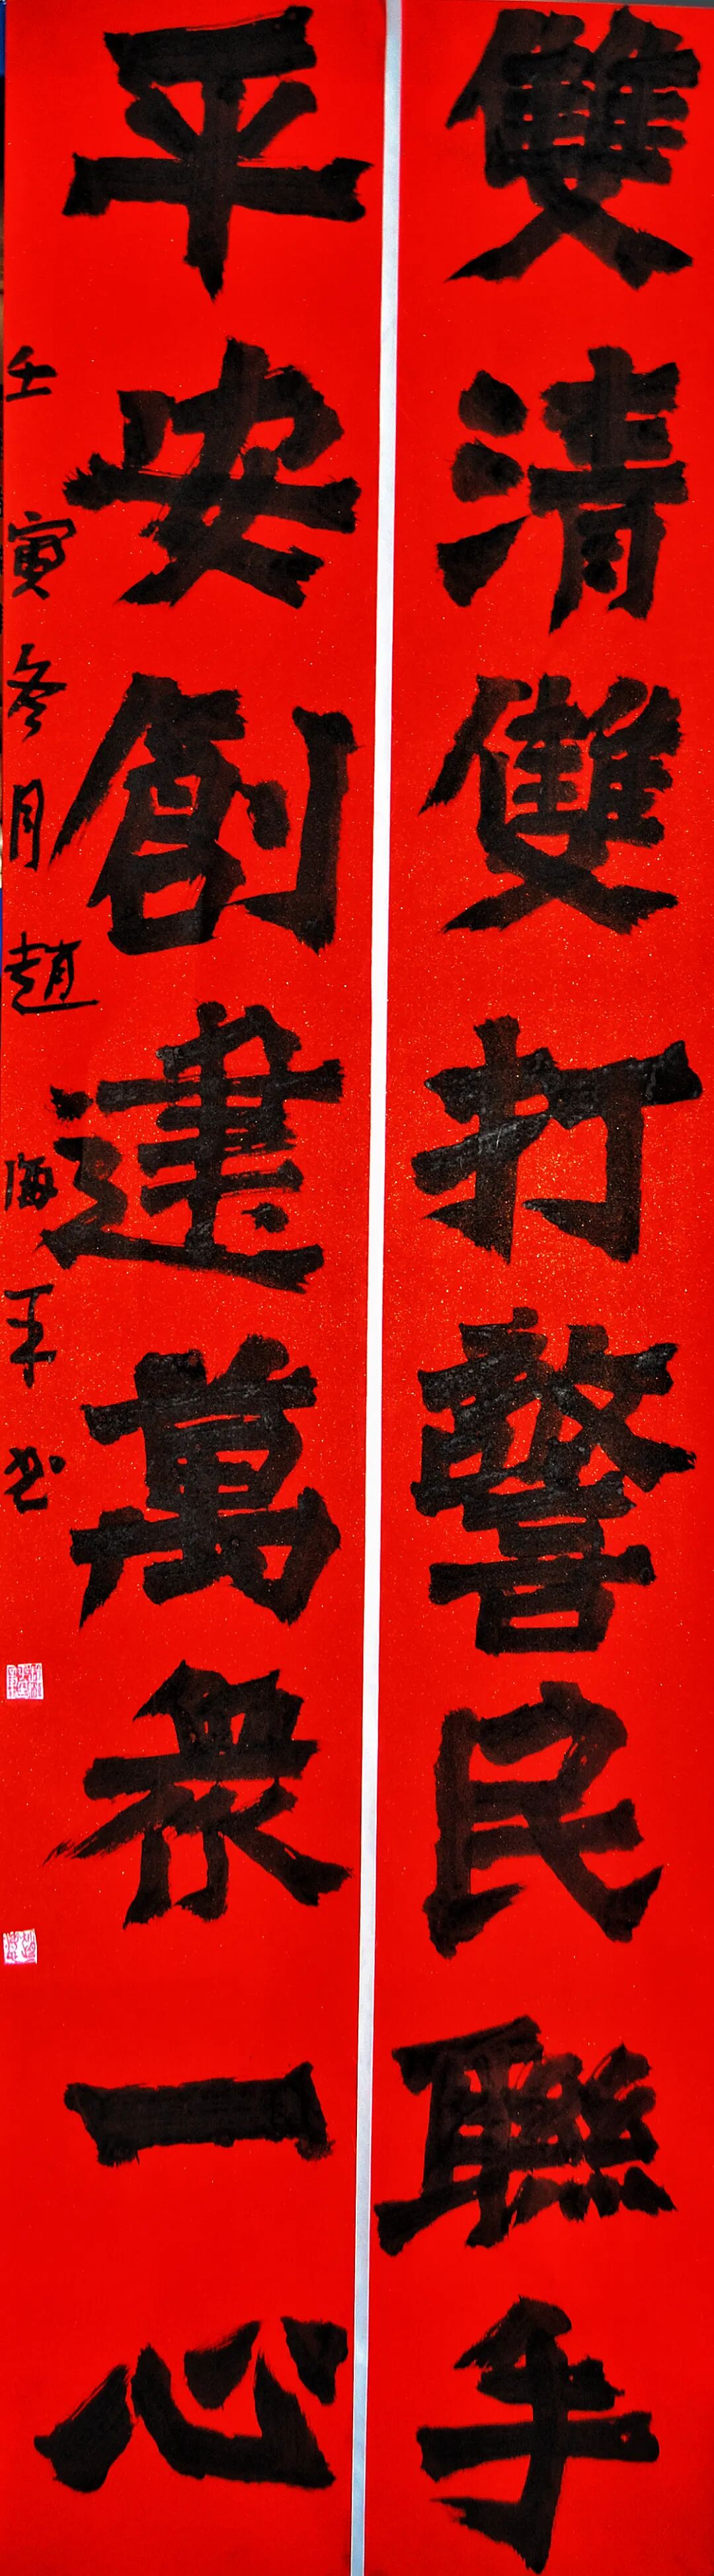 雙清雙打警民聯手
平安創建萬衆一心
壬寅冬月趙海平书